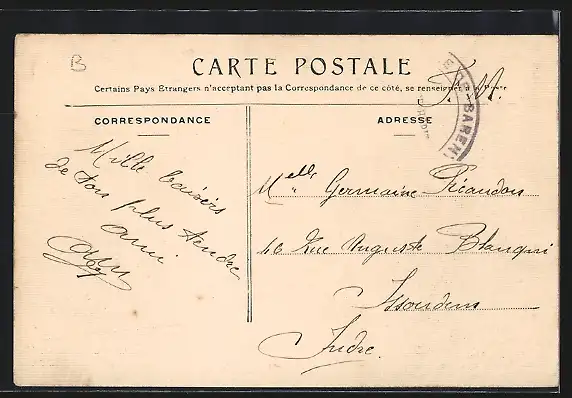 B
CARTE POSTALE
F. M.
Certains Pays Etrangers n'acceptant pas la Correspondance de ce côté, se renseigner à la Poste
CORRESPONDANCE
ADRESSE
BAREN
Mille baisers
de ton plus tendre
ami
Melle Germaine Réaudon
40 Rue Auguste Blanqui
Issoudun
Indre.